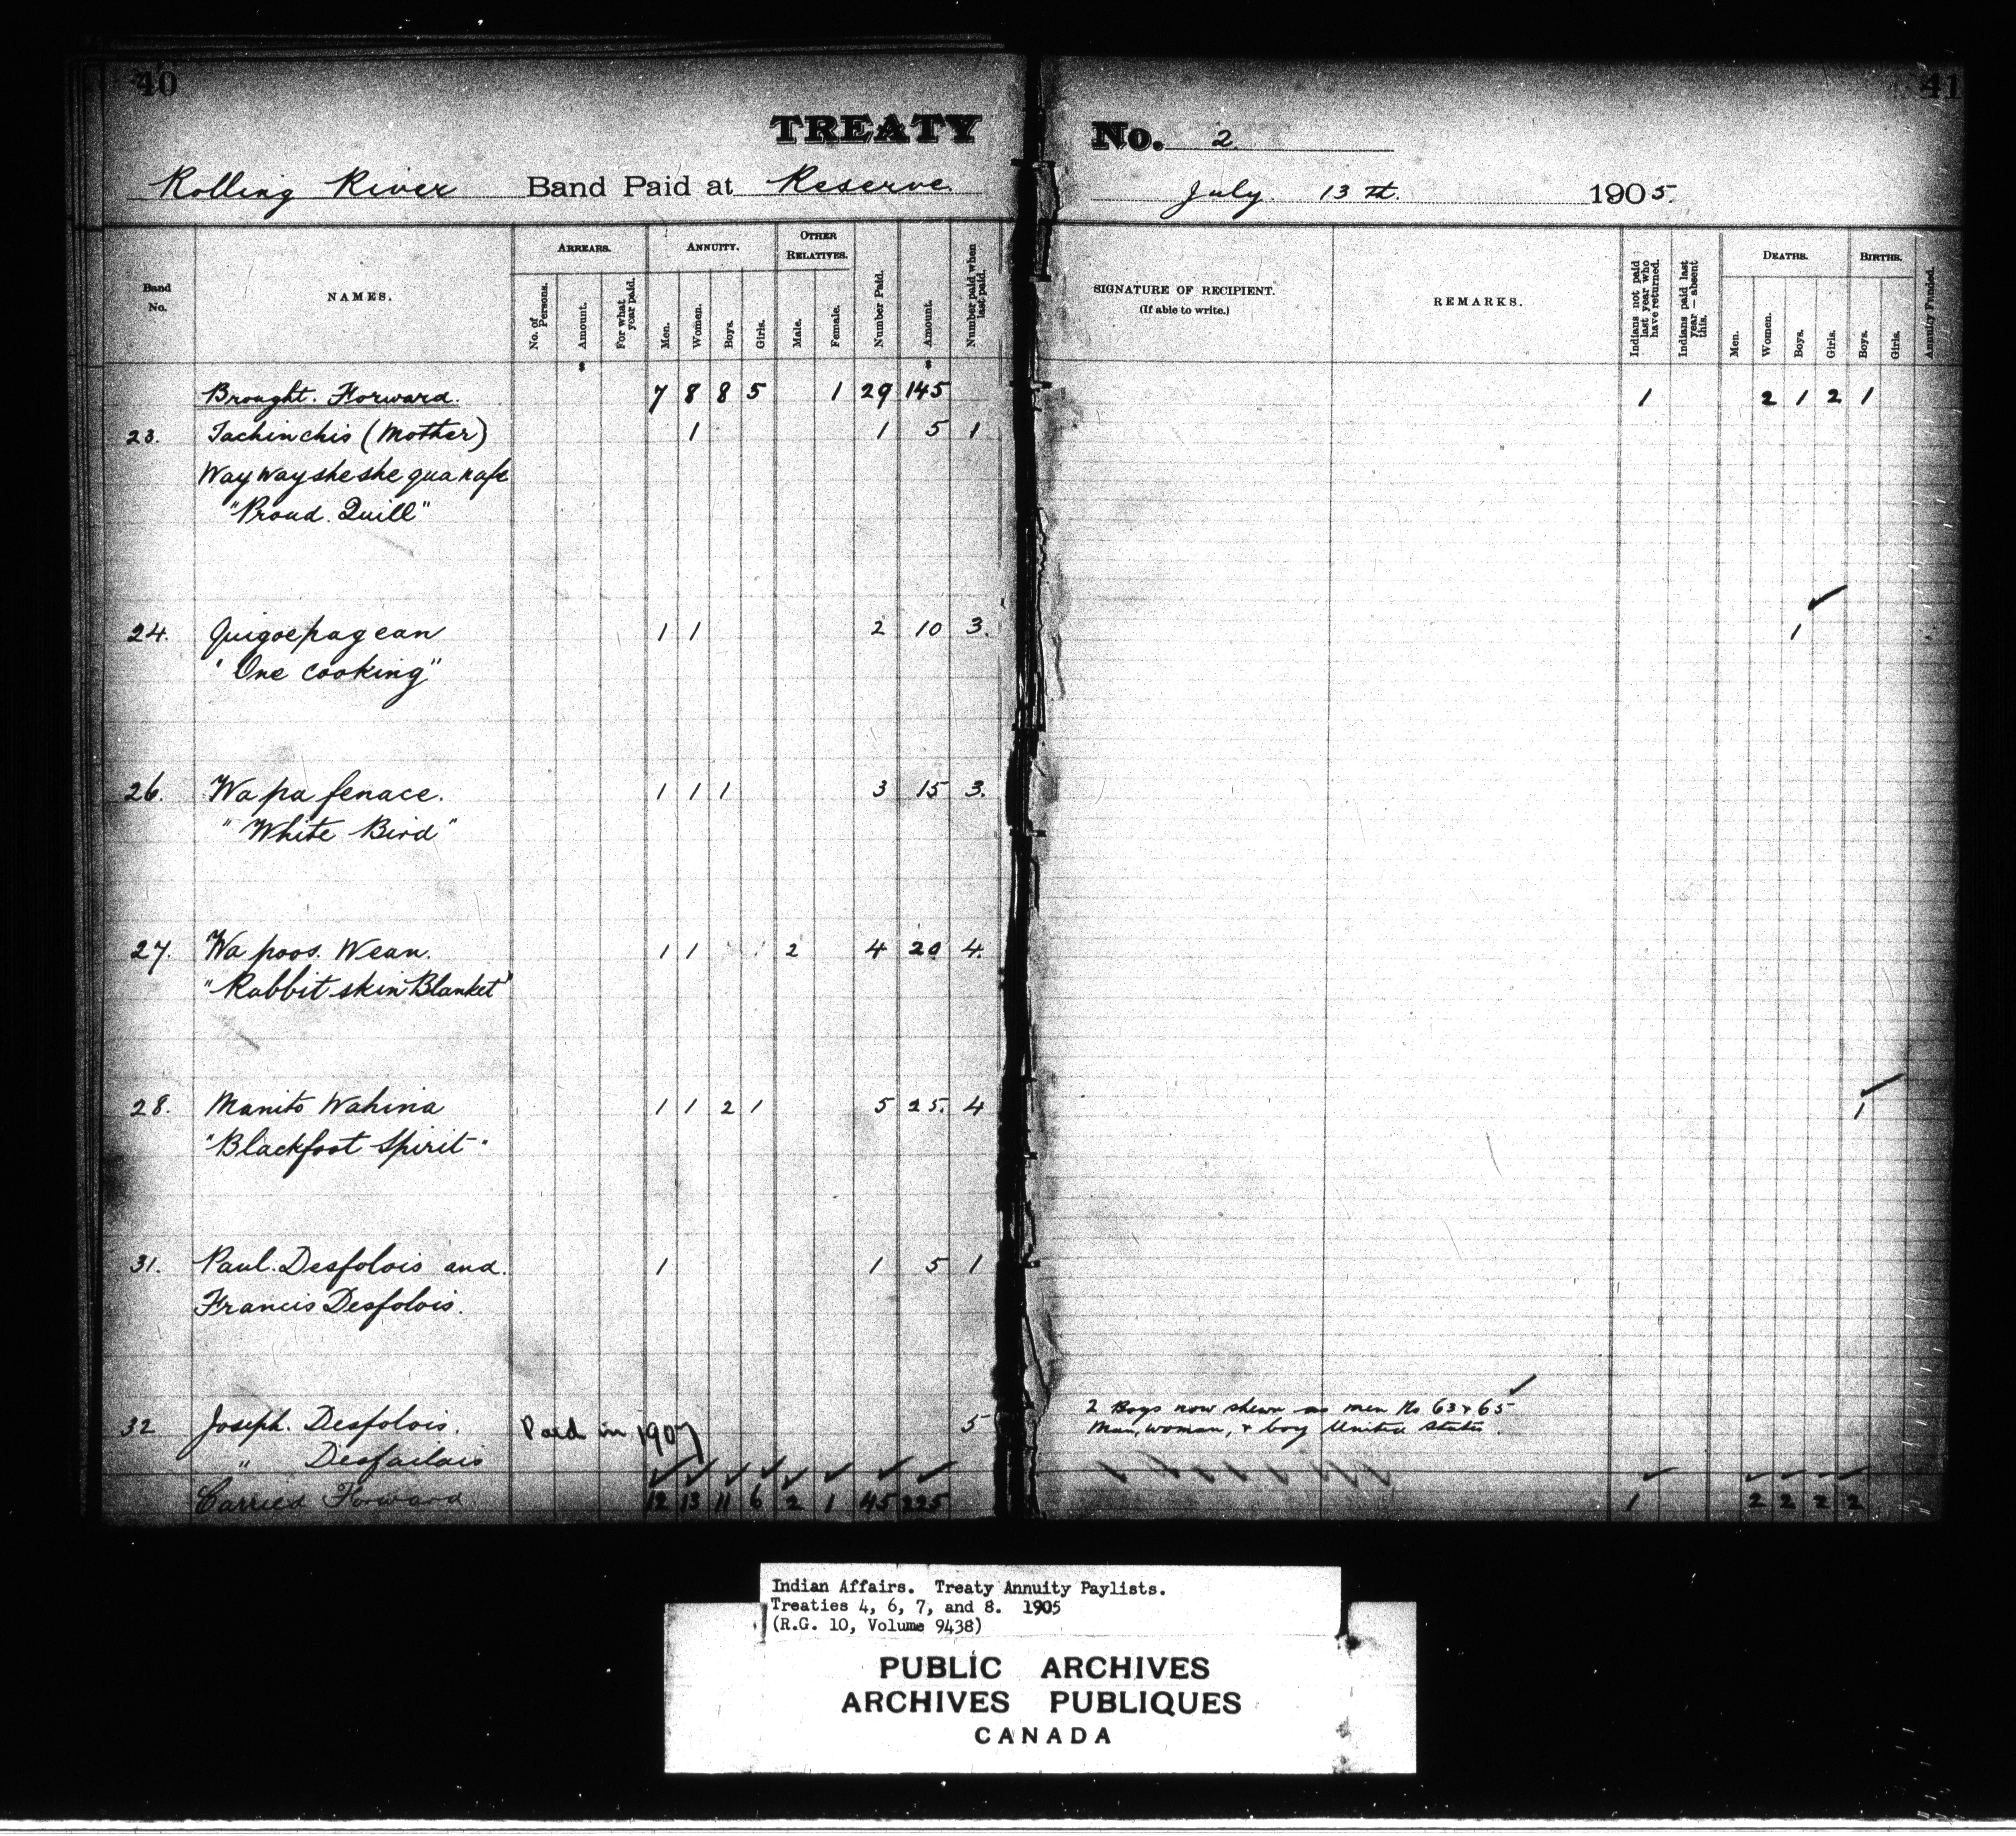 40
41
TREATY No. 2.
Rolling River Band Paid at Reserve. July 13th. 1905.
Band No. NAMES. ARREARS. ANNUITY. OTHER RELATIVES.
No. of Persons. Amount. For what year paid. Men. Women. Boys. Girls. Male. Female. Number Paid. Amount. Number paid when last paid.
SIGNATURE OF RECIPIENT. (If able to write.) REMARKS. Indians not paid last year who have returned. Indians paid last year — absent this. DEATHS. BIRTHS.
Men. Women. Boys. Girls. Boys. Girls. Annuity Funded.
$ $
Brought. Forward. 7 8 8 5 1 29 145 1 2 1 2 1
23. Tachinchis (Mother) 1 1 5 1
Waywaysheshe
"Proud. Quill"
24. 1 1 2 10 3. 1
"One cooking"
26. Wa pa fenace. 1 1 1 3 15 3.
"White Bird"
27. Wa poos. Wean. 1 1 2 4 20 4.
"Rabbit skin Blanket"
28. Manito Wahina 1 1 2 1 5 25. 4 1
"Blackfoot Spirit"
31. Paul. Desfolois and. 1 1 5 1
Francis Desfolois.
32 Joseph. Desfolois. Paid in 1907 5 2 Boys now shewn as men No 63 & 65
Man, woman, & boy United States.
" Desfailais
Carried Forward 12 13 11 6 2 1 45 225 1 2 2 2 2
Indian Affairs. Treaty Annuity Paylists.
Treaties 4, 6, 7, and 8. 1905
(R.G. 10, Volume 9438)
PUBLIC ARCHIVES
ARCHIVES PUBLIQUES
CANADA